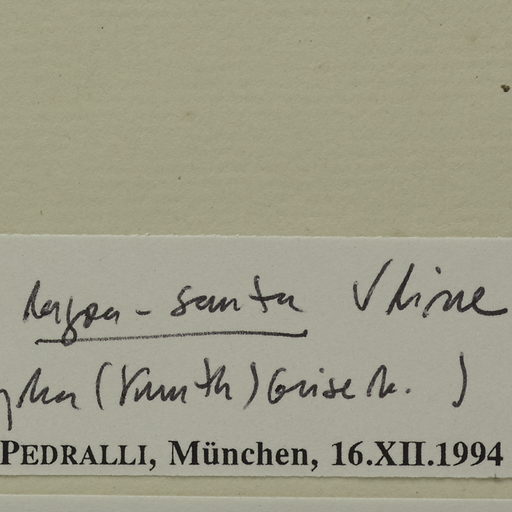 lagoa-santa Uline
(Kunth) Griseb. )
PEDRALLI, München, 16.XII.1994